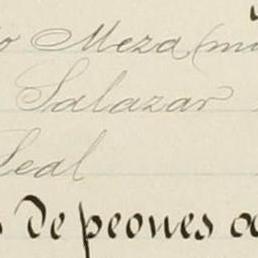 o Meza (m
Salazar
Leal
s de peones a